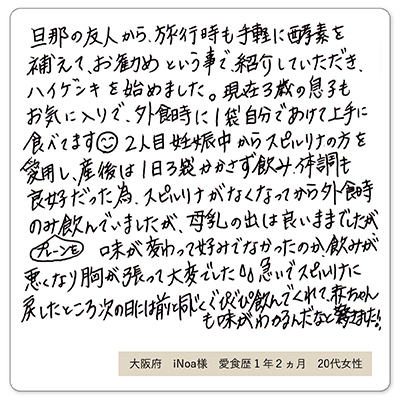 旦那の友人から、旅行時も手軽に酵素を
補えて、お勧めという事で、紹介していただき、
ハイゲンキを始めました。現在3歳の息子も
お気に入りで、外食時に1袋自分であけて上手に
食べてます☺ 2人目妊娠中からスピルリナの方を
愛用し、産後は1日3袋かかさず飲み、体調も
良好だった為、スピルリナがなくなってから外食時
のみ飲んでいましたが、母乳の出は良いままでしたが
プレーンを 味が変わって好みでなかったのか、飲みが
悪くなり胸が張って大変でした 急いでスピルリナに
戻したところ次の日には前と同じくぐびぐび飲んでくれて、赤ちゃん
も味がわかるんだなと驚きました!!
大阪府 iNoa様 愛食歴1年2ヵ月 20代女性